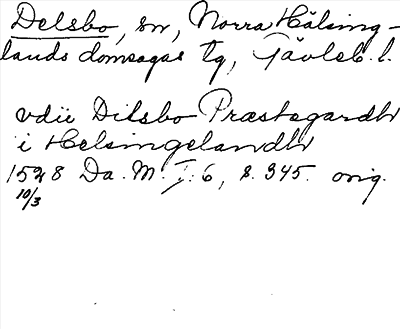 Delsbo, sn, Norra Hälsing-
lands domsagas tg, Gävleb. l.
vdii Dilsbo Præstagardh
i Helsingelandh
1528 Da. M. I: 6, s. 345. orig.
10/3